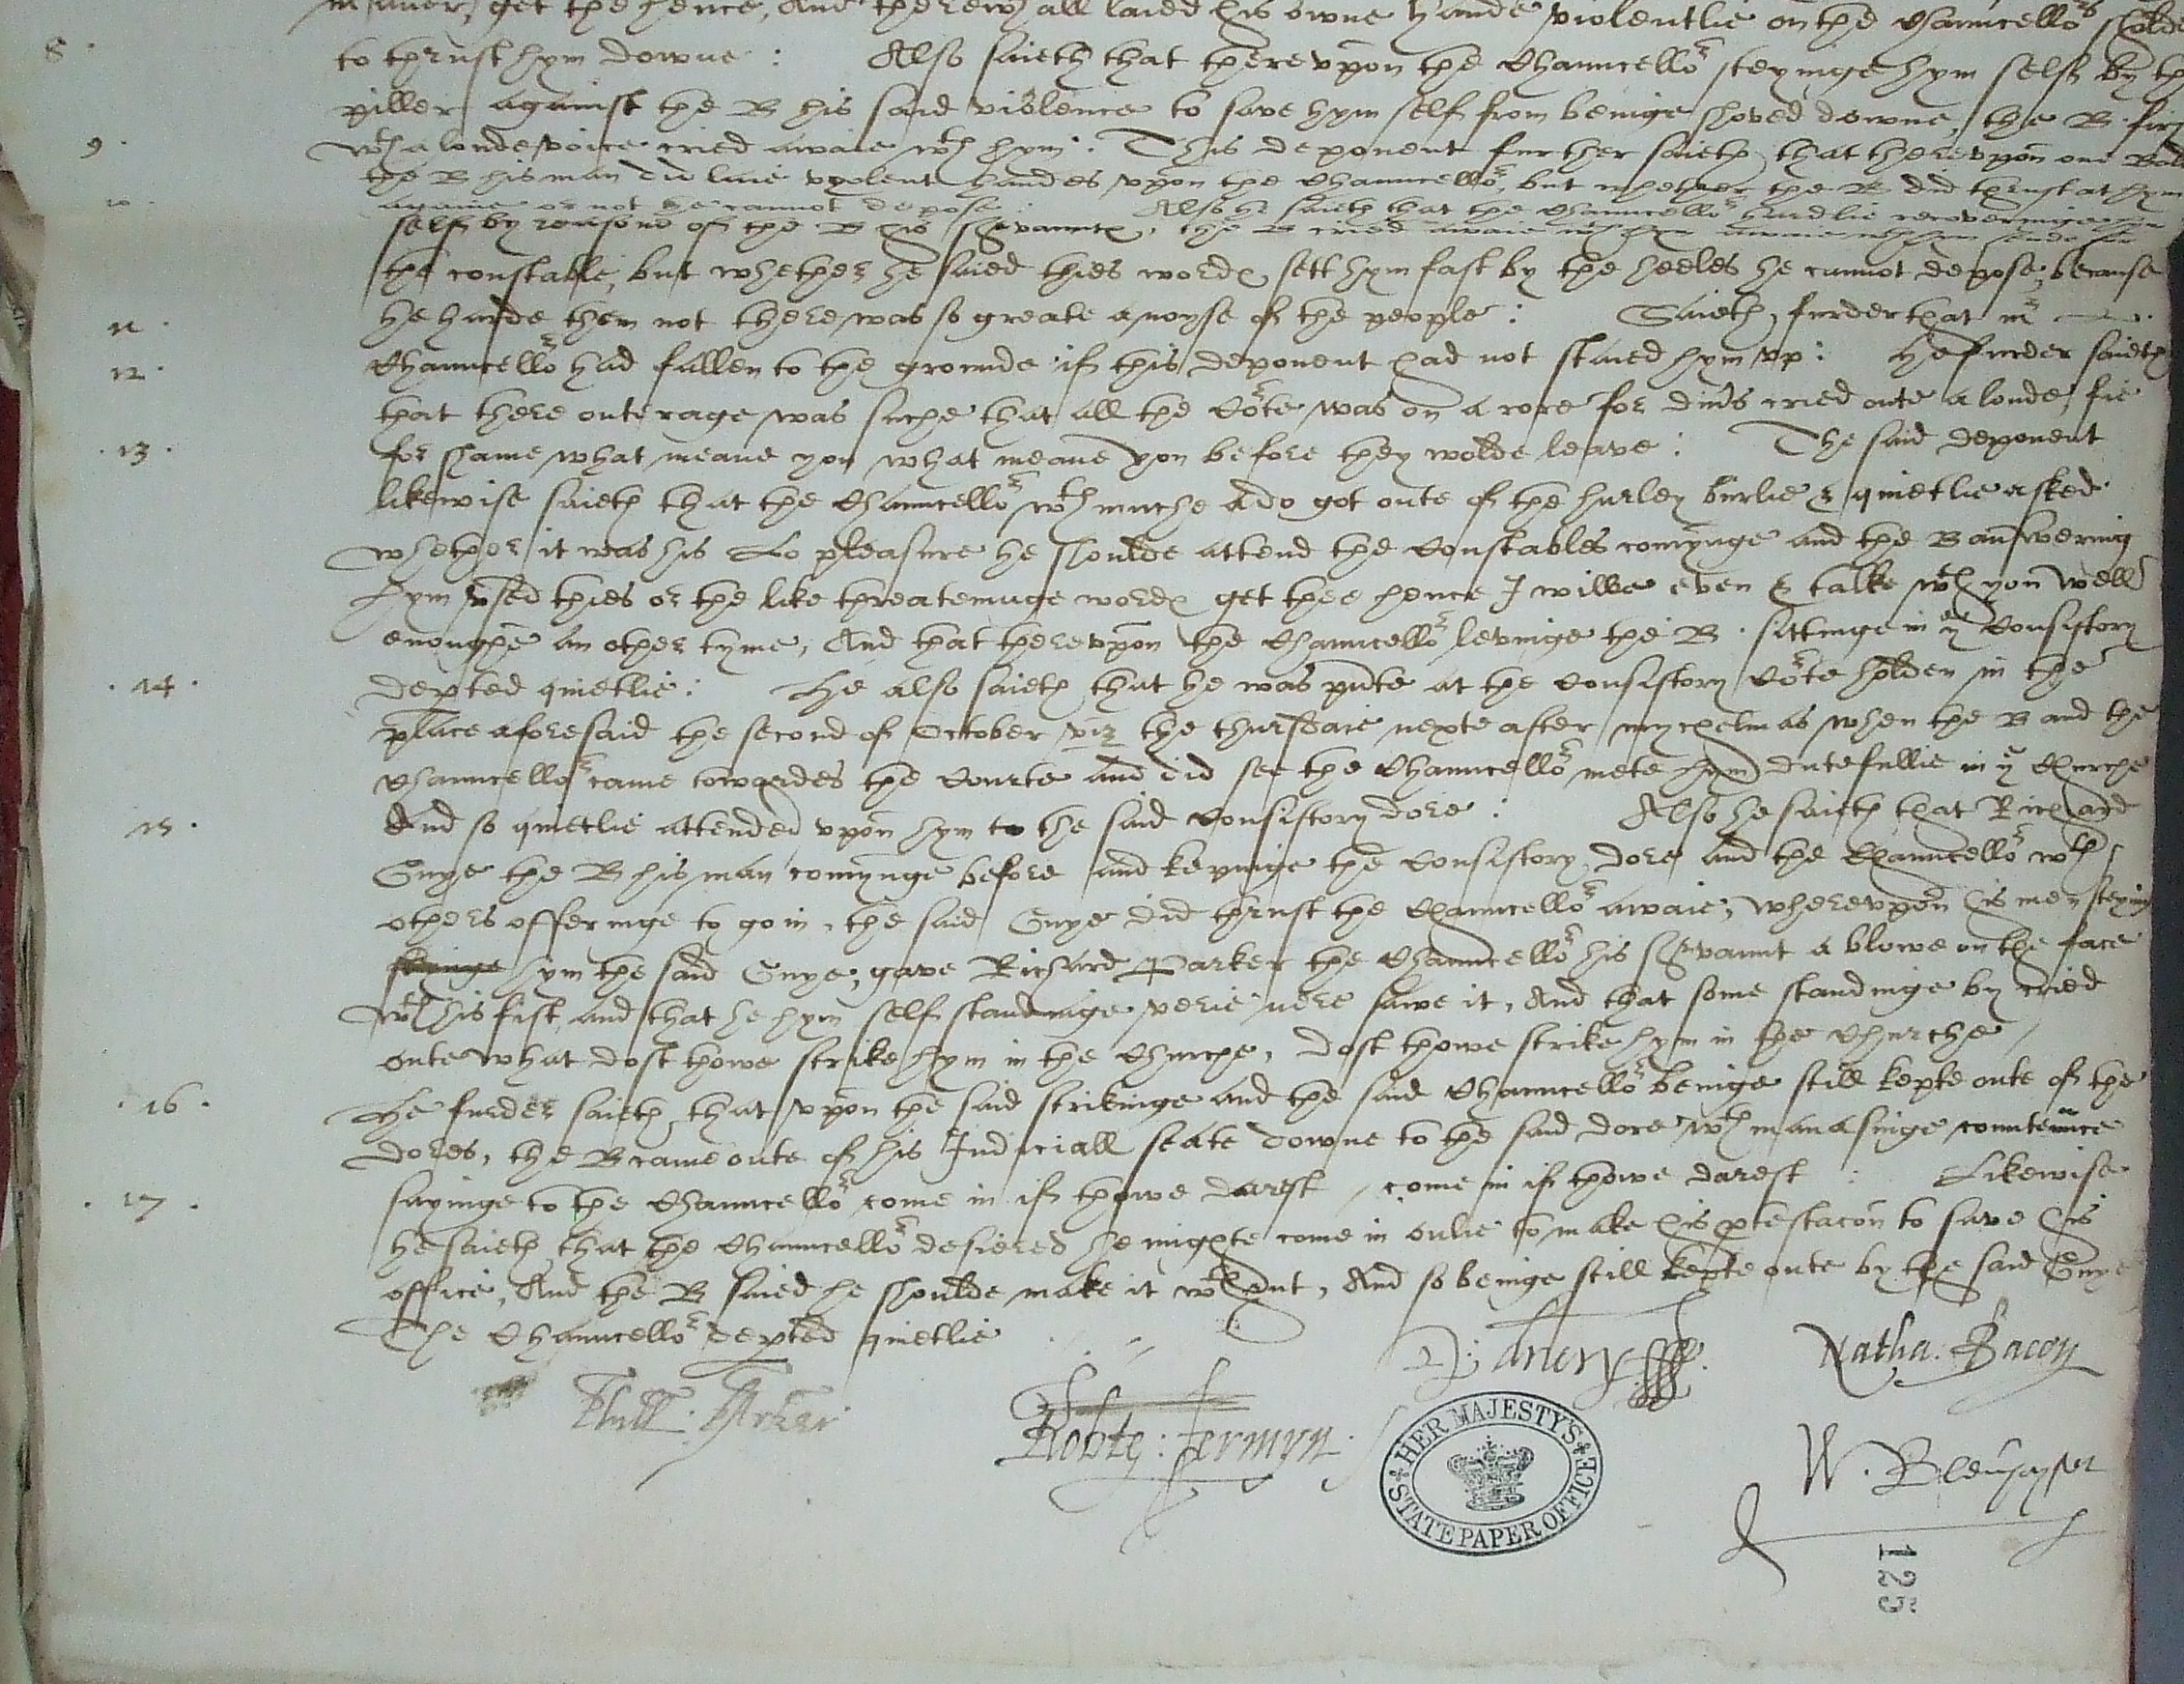 get the hence, And therewthall laied his owne hande violentlie on the Chauncellors
8. to thrust hym downe : Also saieth that therevpon the Chauncellor steyinge hym self by
piller against the B his said violence to save hym self from beinge shoved downe, the B.
9. wth a loude voice cried awaie wth hym : This deponent further saieth that therevpon one
the B his man did laie vyolent handes vpon the Chauncellor, but whether the B did thrust at hym
10. againe or not he cannot depose : Also he saieth that the Chauncellor hardlie recoveringe
self by reasone of the B his servauntes, the B cried awaie wth hym awaie wth hym sende for
the constable, but whether he saied thies wordes, sett hym fast by the heeles he cannot depose, because
11. he harde them not there was so greate a noyse of the people : Saieth furder that mr
12. Chauncellor had fallen to the grounde if this deponent had not staied hym vp : He furder saieth
that there outerage was suche that all the Corte was on a rore for divers cried oute aloude, fie
13. for shame what meane you what meane you before they wolde leave : The said deponent
likewise saieth that the Chauncellor wth muche ado got oute of the hurley burlie & quietlie asked
whether it was his Lo pleasure he shoulde attend the Constables comynge and the B answering
hym vsed thies or the like threateninge wordes get thee hence I willbe even & talke wth you well
enoughe an other tyme, And that therevpon the Chauncellor levinge the B. sittinge in ye Consistory
14. depted quietlie : He also saieth that he was pnte at the Consistory Corte holden in the
place aforesaid the second of October viz the thursdaie nexte after mychelmas when the B and the
Chauncellor came towardes the Courte and did see the Chauncellor mete hym dutefullie in ye Churche
15. And so quietlie attended vpon hym to the said Consistory dore : Also he saieth that Richard
Guye the B his man comynge before and kepinge the Consistory dore and the Chauncellor wth
others offeringe to go in, the said Guye did thrust the Chauncellor awaie, wherevpon his men steyinge
hym the said Guye, gave Richard Parker the Chauncellor his servaunt a blowe on the face
wth his fist, and that he hym self standinge verie nere sawe it, And that some standinge by cried
oute what dost thowe strike hym in the Churche, dost thowe strike hym in the Churche /
16. He furder saieth that vpon the said strikinge and the said Chauncellor beinge still kepte oute of the
dores, the B came oute of his Iudiciall seate downe to the said dore wth manasinge countenñce
17. sayinge to the Chauncellor come in if thowe darest / come in if thowe darest : Likewise
he saieth that the Chauncellor desiered he mighte come in onlie to make his ptestacon to save his
office, And the B saied he shoulde make it wthout, And so beinge still kepte oute by the said Guye
The Chauncellor depted quietlie
Natha. Bacon
Robte : Jermyn.
W. Blenhaysset
HER MAJESTY'S STATE PAPER OFFICE
125